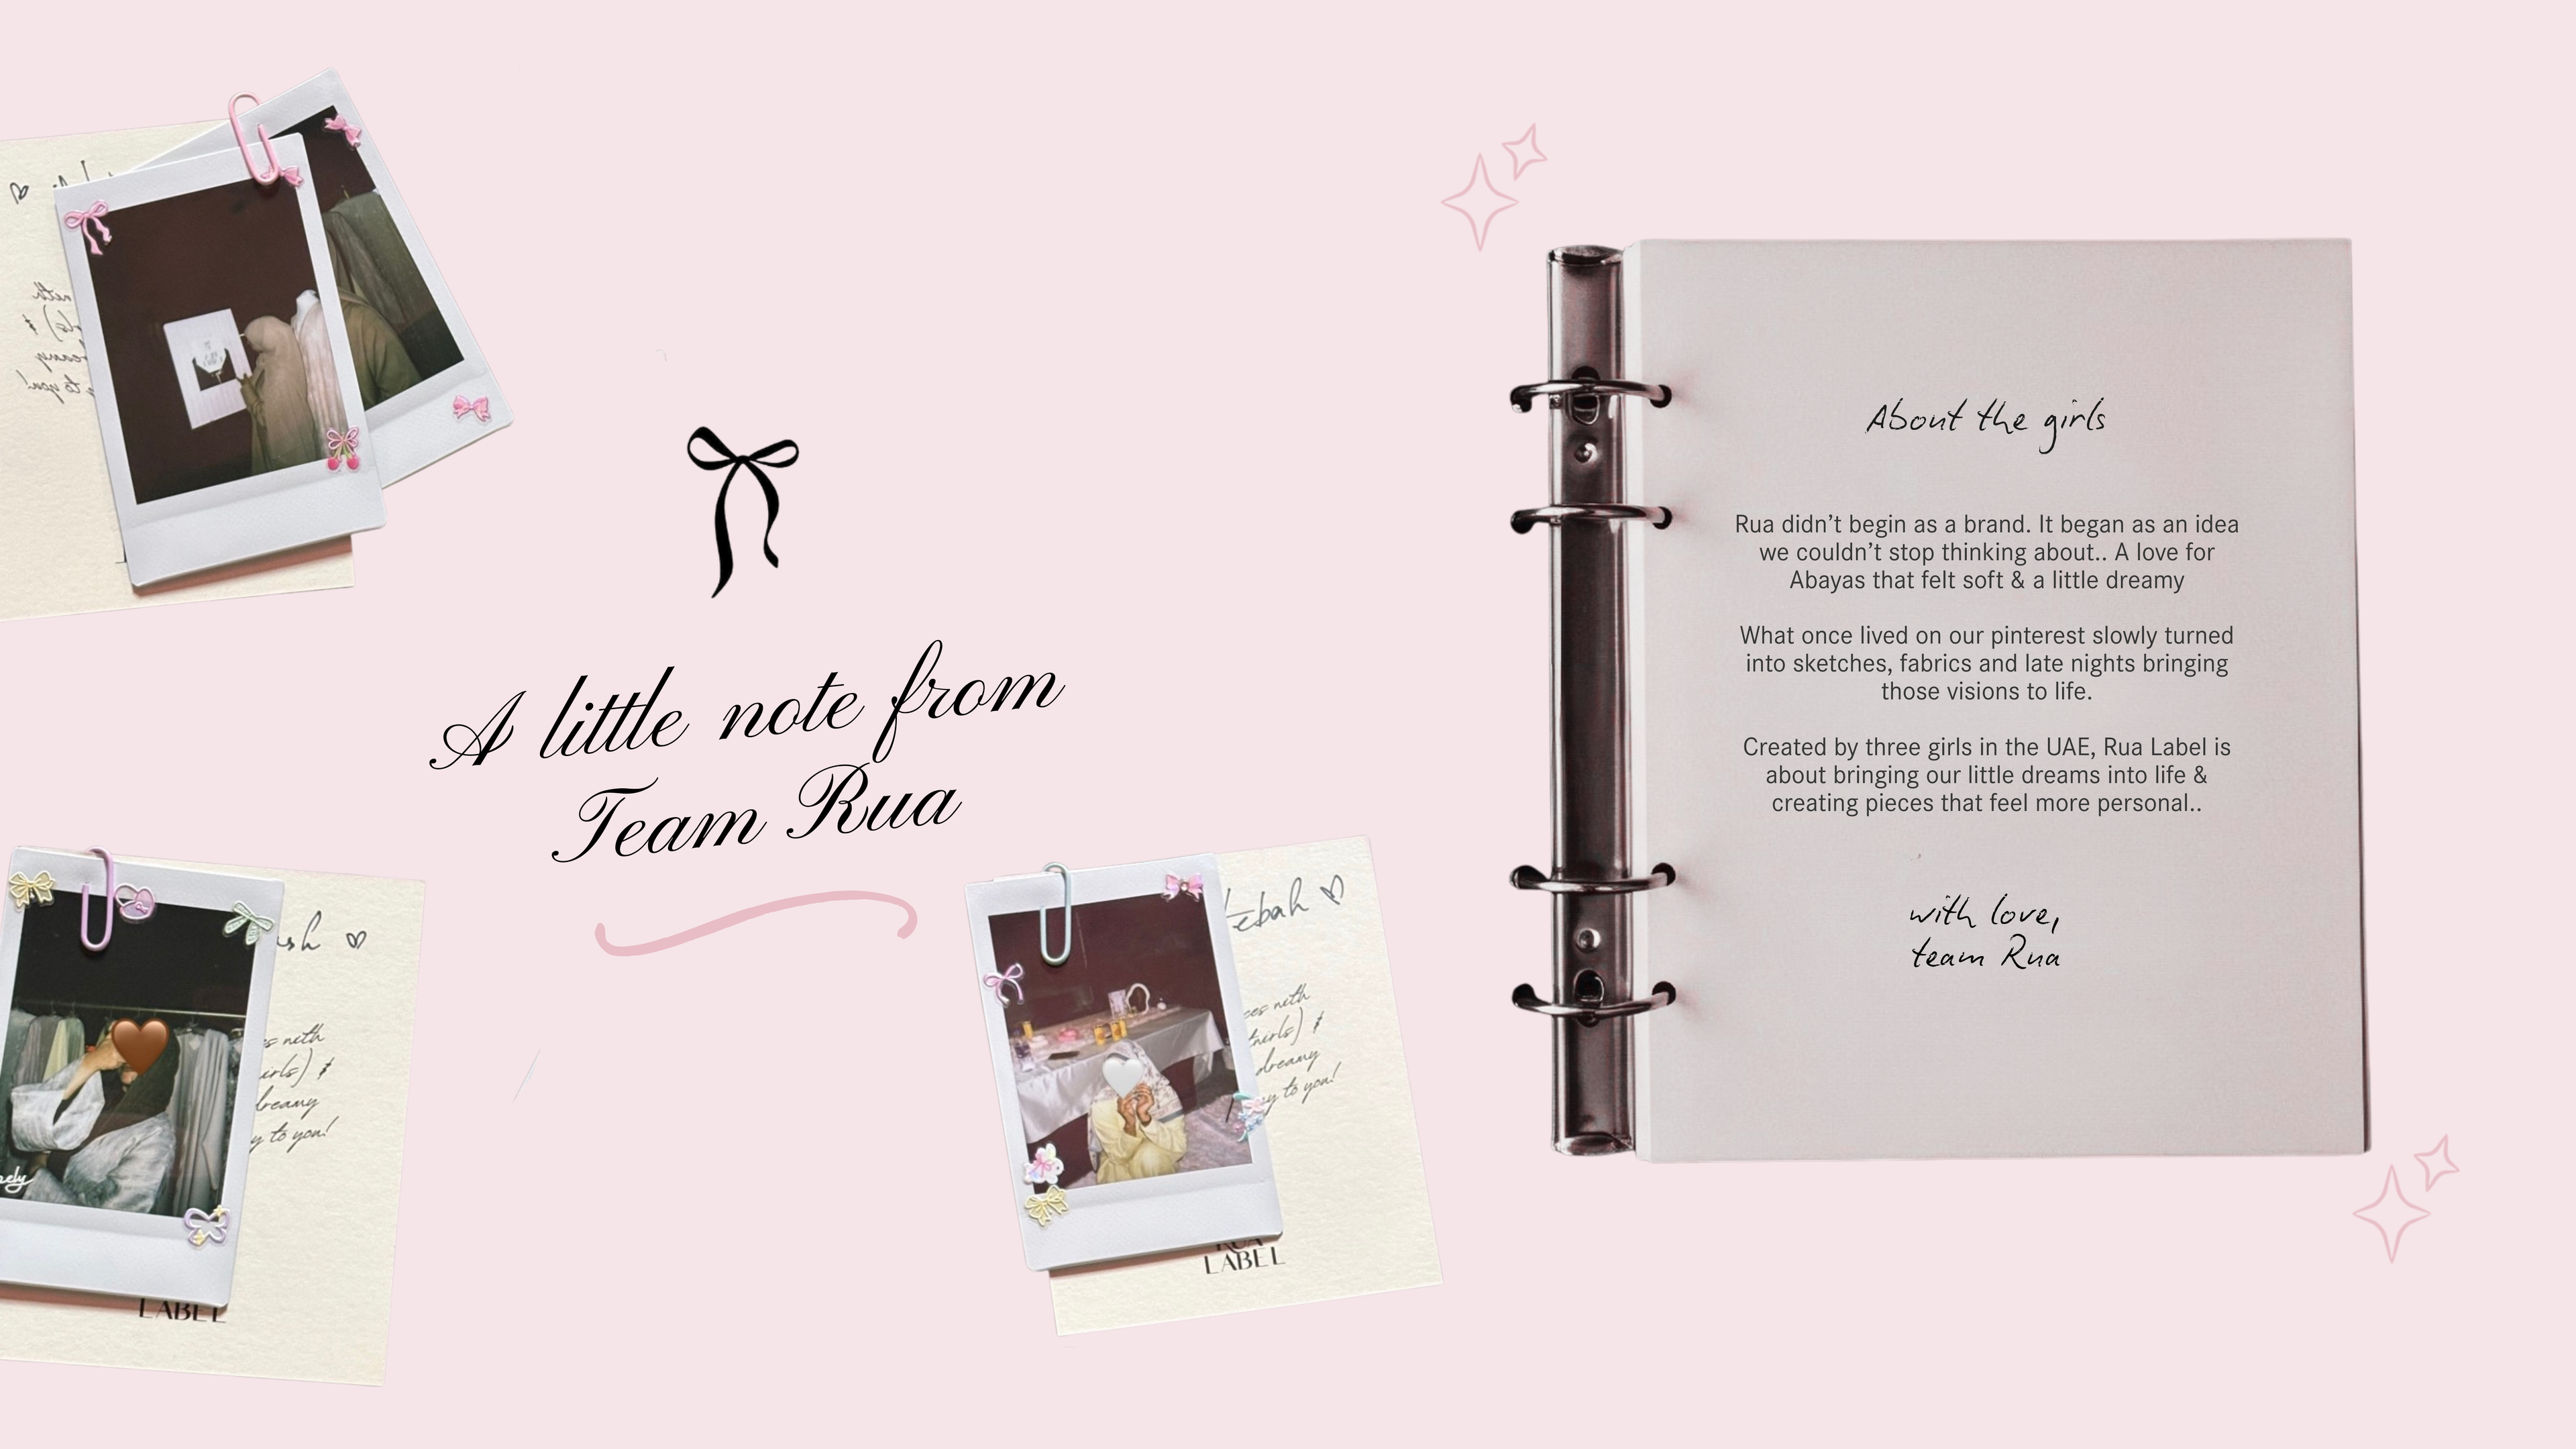 A little note from
Team Rua
About the girls
Rua didn't begin as a brand. It began as an idea
we couldn't stop thinking about.. A love for
Abayas that felt soft & a little dreamy
What once lived on our pinterest slowly turned
into sketches, fabrics and late nights bringing
those visions to life.
Created by three girls in the UAE, Rua Label is
about bringing our little dreams into life &
creating pieces that feel more personal..
with love,
team Rua
girls) &
dreamy
to you!
LABEL
girls) &
dreamy
to you!
RUA
LABEL